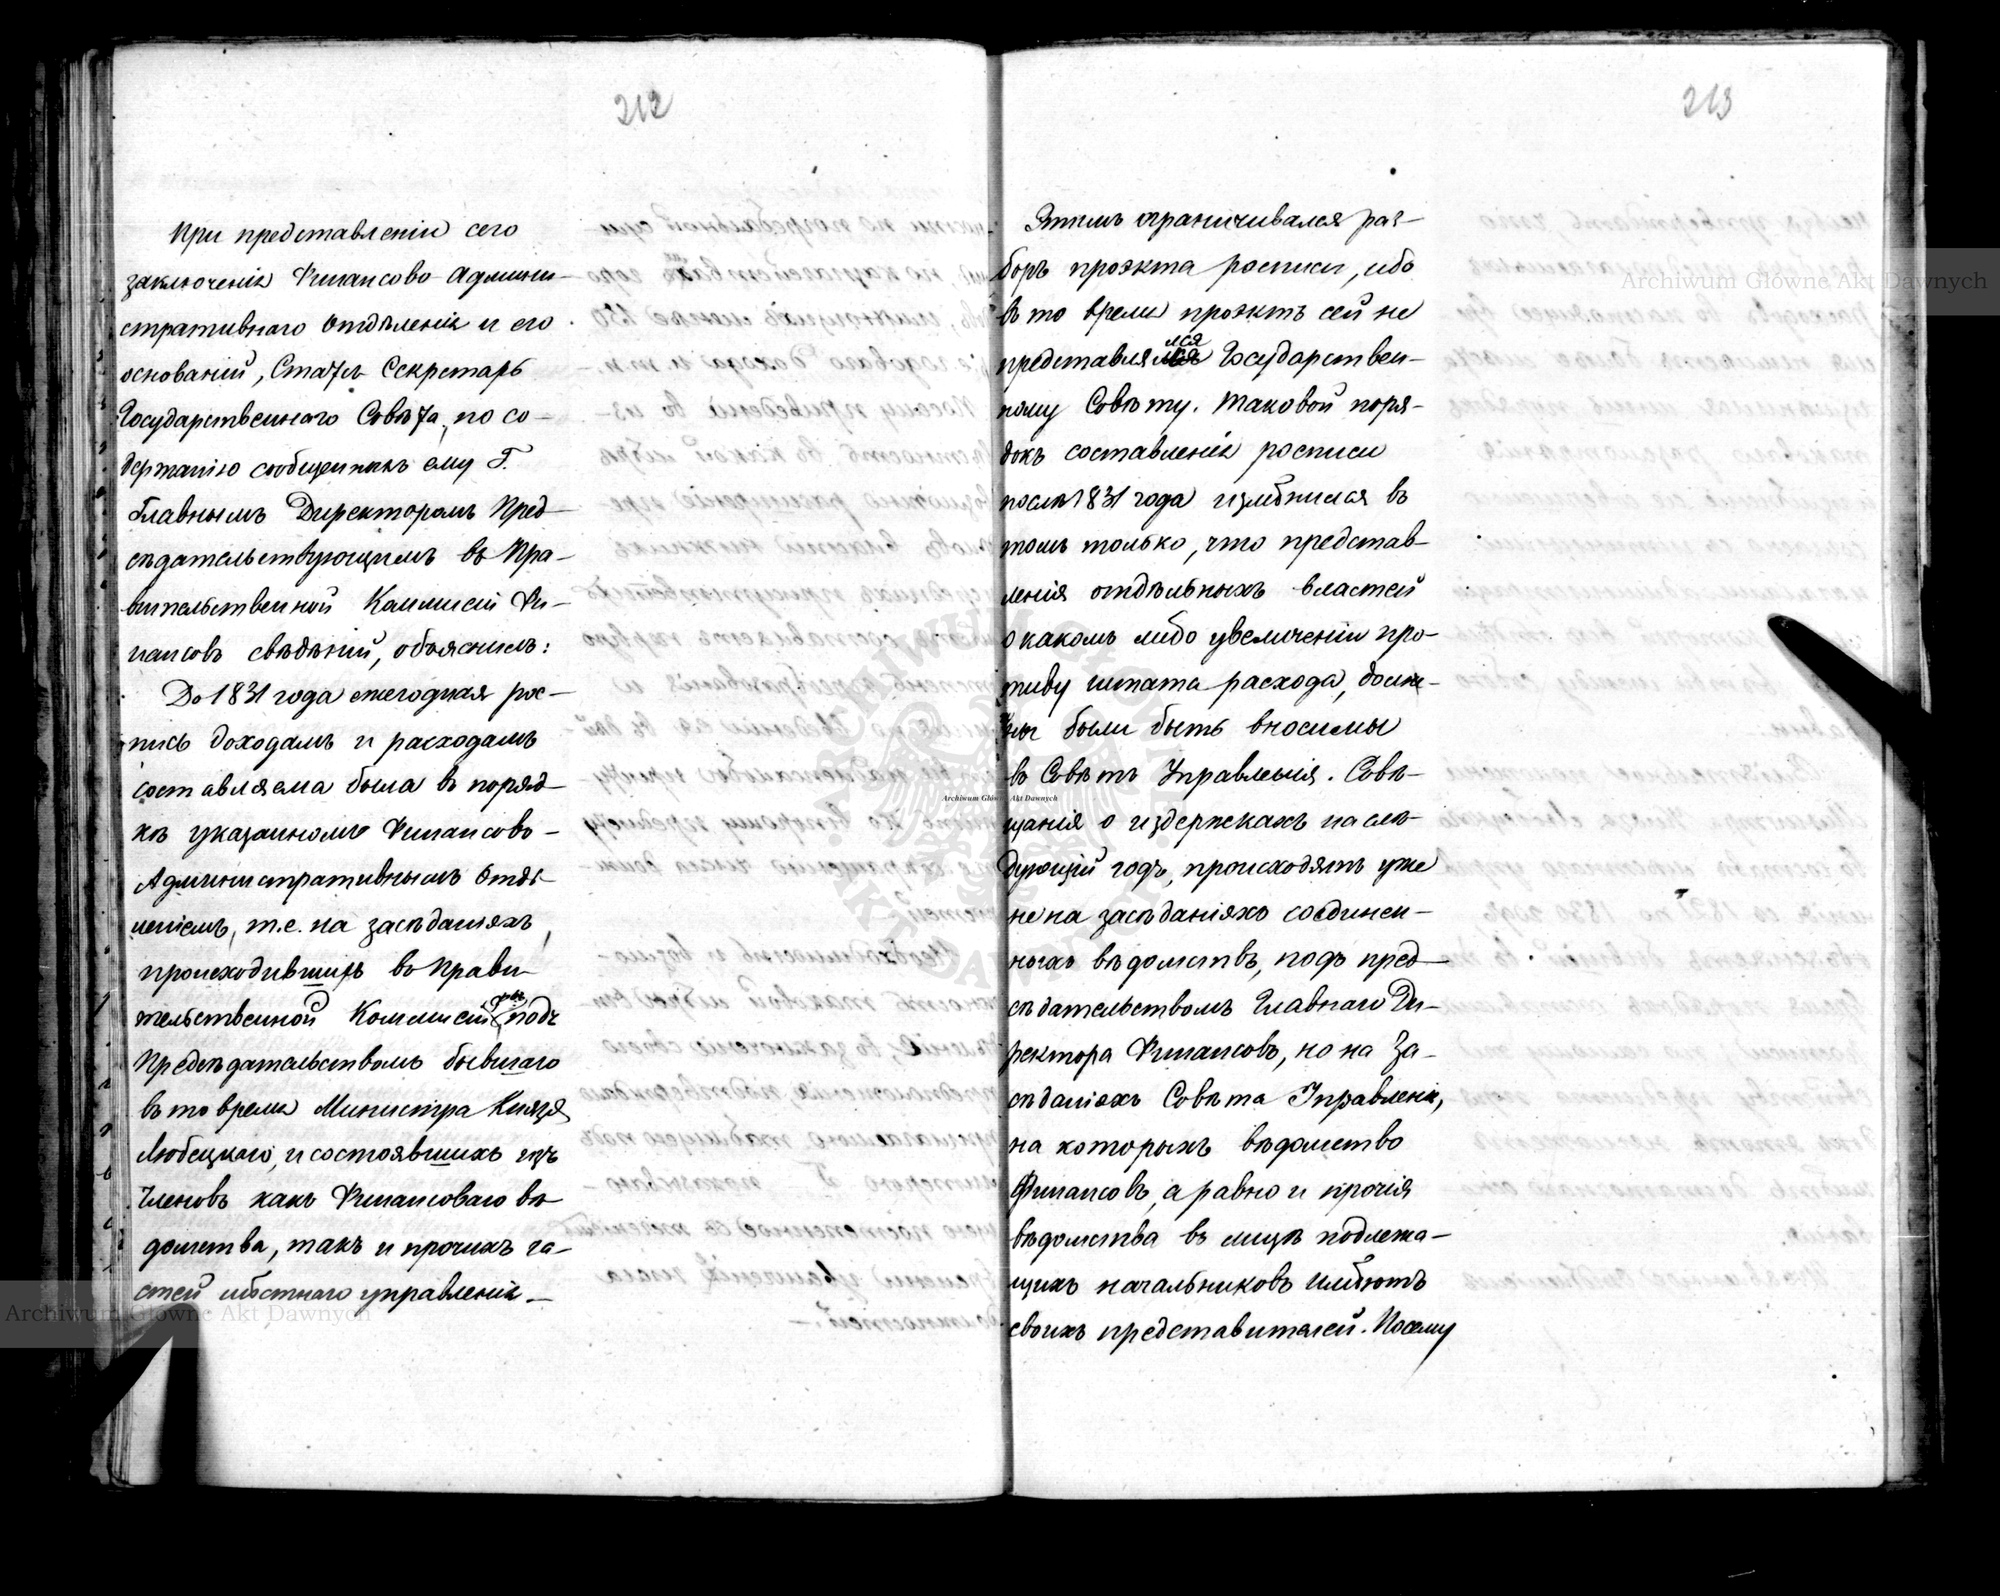 212
При представленіи сего
заключенія Финансово-Админи-
стративнаго Отдѣленія и его
основаній, Статсъ Секретарь
Государственнаго Совѣта, по со-
держанію сообщенныхъ ему Г.
Главнымъ Директоромъ Пред-
сѣдательствующимъ въ Пра-
вительственной Коммисіи Фи-
нансовъ свѣдѣній, объяснилъ:
До 1831 года ежегодная рос-
пись доходамъ и расходамъ
составляема была въ поряд-
кѣ указанномъ Финансово-
Административнымъ Отдѣ-
леніемъ, т.е. на засѣданіяхъ,
происходившихъ въ Прави-
тельственной Коммисіи подъ
Предсѣдательствомъ бывшаго
въ то время Министра Князя
Любецкаго, и состоявшихъ изъ
Членовъ какъ Финансоваго вѣ-
домства, такъ и прочихъ ча-
стей мѣстнаго управленія. —
213
Этимъ ограничивался раз-
боръ проэкта росписи, ибо
въ то время проэктъ сей не
представлялся Государствен-
ному Совѣту. Таковой поря-
докъ составленія росписи
послѣ 1831 года измѣнился въ
томъ только, что представ-
ленія отдѣльныхъ властей
о какомъ либо увеличеніи про-
тиву штата расхода, долж-
ны были быть вносимы
въ Совѣтъ Управленія. Совѣ-
щанія о издержкахъ на слѣ-
дующій годъ, происходятъ уже
не на засѣданіяхъ соединен-
ныхъ вѣдомствъ, подъ пред-
сѣдательствомъ Главнаго Ди-
ректора Финансовъ, но на За-
сѣданіяхъ Совѣта Управленія,
на которыхъ вѣдомство
Финансовъ, а равно и прочія
вѣдомства въ лицѣ подлежа-
щихъ начальниковъ имѣютъ
своихъ представителей. Посему
Archiwum Główne Akt Dawnych
Archiwum Główne Akt Dawnych
Archiwum Główne Akt Dawnych